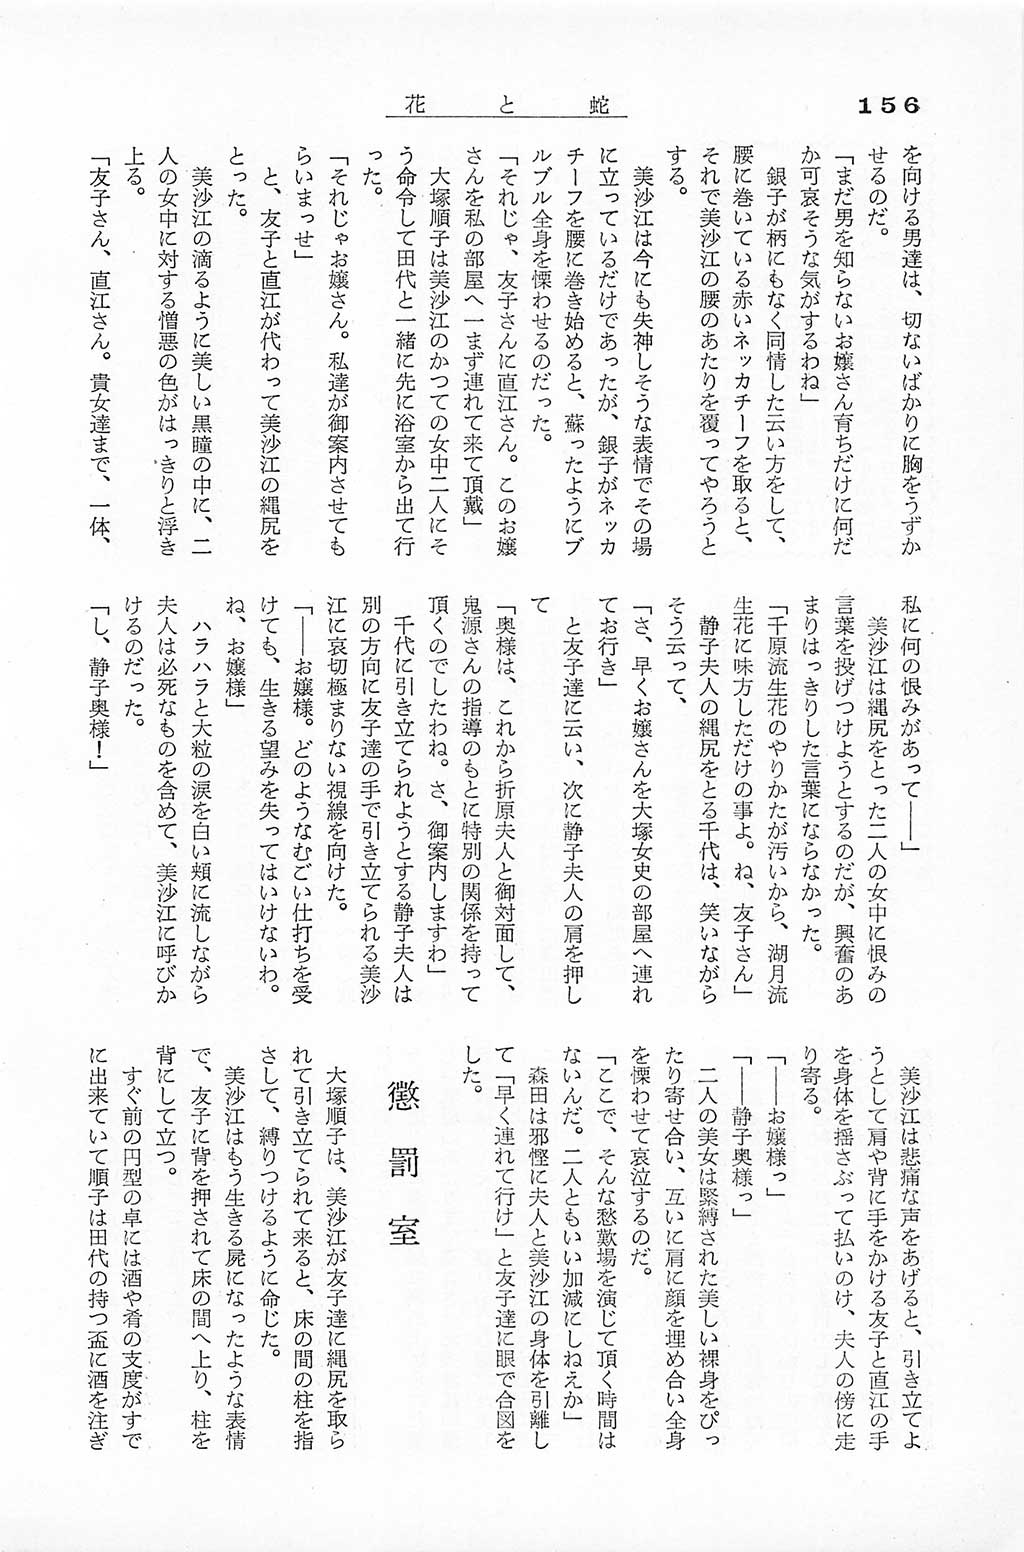 156
花と蛇
を向ける男達は、切ないばかりに胸をうずか
せるのだ。
「まだ男を知らないお嬢さん育ちだけに何だ
か可哀そうな気がするわね」
銀子が柄にもなく同情した云い方をして、
腰に巻いている赤いネッカチーフを取ると、
それで美沙江の腰のあたりを覆ってやろうと
する。
美沙江は今にも失神しそうな表情でその場
に立っているだけであったが、銀子がネッカ
チーフを腰に巻き始めると、蘇ったようにブ
ルブル全身を慄わせるのだった。
「それじゃ、友子さんに直江さん。このお嬢
さんを私の部屋へ一まず連れて来て頂戴」
大塚順子は美沙江のかつての女中二人にそ
う命令して田代と一緒に先に浴室から出て行
った。
「それじゃお嬢さん。私達が御案内させても
らいまっせ」
と、友子と直江が代わって美沙江の縄尻を
とった。
美沙江の滴るように美しい黒瞳の中に、二
人の女中に対する憎悪の色がはっきりと浮き
上る。
「友子さん、直江さん。貴女達まで、一体、
私に何の恨みがあって――」
美沙江は縄尻をとった二人の女中に恨みの
言葉を投げつけようとするのだが、興奮のあ
まりはっきりした言葉にならなかった。
「千原流生花のやりかたが汚いから、湖月流
生花に味方しただけの事よ。ね、友子さん」
静子夫人の縄尻をとる千代は、笑いながら
そう云って、
「さ、早くお嬢さんを大塚女史の部屋へ連れ
てお行き」
と友子達に云い、次に静子夫人の肩を押し
て
「奥様は、これから折原夫人と御対面して、
鬼源さんの指導のもとに特別の関係を持って
頂くのでしたわね。さ、御案内しますわ」
千代に引き立てられようとする静子夫人は
別の方向に友子達の手で引き立てられる美沙
江に哀切極まりない視線を向けた。
「――お嬢様。どのようなむごい仕打ちを受
けても、生きる望みを失ってはいけないわ。
ね、お嬢様」
ハラハラと大粒の涙を白い頬に流しながら
夫人は必死なものを含めて、美沙江に呼びか
けるのだった。
「し、静子奥様！」
美沙江は悲痛な声をあげると、引き立てよ
うとして肩や背に手をかける友子と直江の手
を身体を揺さぶって払いのけ、夫人の傍に走
り寄る。
「――お嬢様っ」
「――静子奥様っ」
二人の美女は緊縛された美しい裸身をぴっ
たり寄せ合い、互いに肩に顔を埋め合い全身
を慄わせて哀泣するのだ。
「ここで、そんな愁歎場を演じて頂く時間は
ないんだ。二人ともいい加減にしねえか」
森田は邪慳に夫人と美沙江の身体を引離し
て「早く連れて行け」と友子達に眼で合図を
した。
懲罰室
大塚順子は、美沙江が友子達に縄尻を取ら
れて引き立てられて来ると、床の間の柱を指
さして、縛りつけるように命じた。
美沙江はもう生きる屍になったような表情
で、友子に背を押されて床の間へ上り、柱を
背にして立つ。
すぐ前の円型の卓には酒や肴の支度がすで
に出来ていて順子は田代の持つ盃に酒を注ぎ